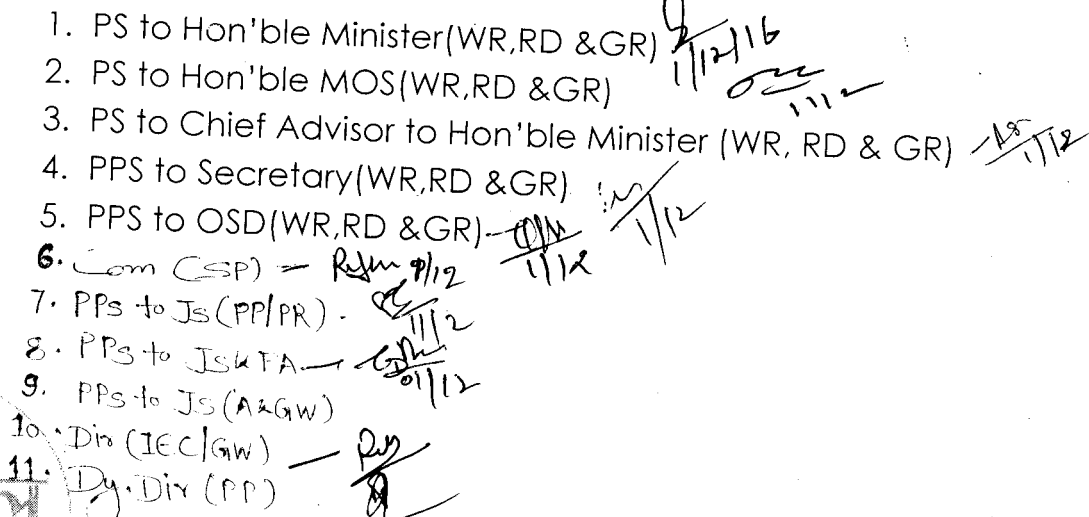 1. PS to Hon'ble Minister(WR,RD &GR) 1/12/16
2. PS to Hon'ble MOS(WR,RD &GR) 1/12
3. PS to Chief Advisor to Hon'ble Minister (WR, RD & GR) 1/12
4. PPS to Secretary(WR,RD &GR) 1/12
5. PPS to OSD(WR,RD &GR) 1/12
6. Com (SP) 1/12
7. PPS to JS (PP/PR). 1/12
8. PPS to JS & FA 01/12
9. PPS to JS (A&GW)
10. Dir (IEC/GW)
11. Dy. Dir (PP)